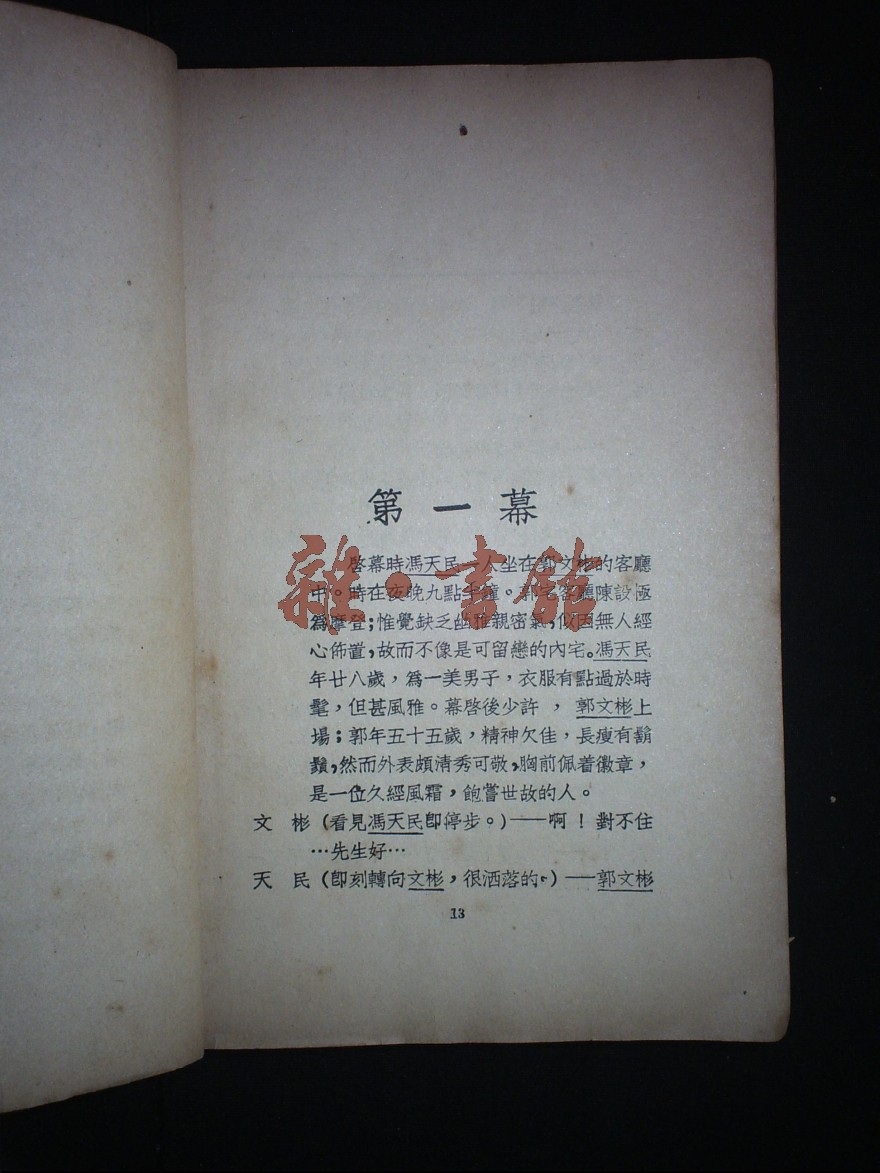 第一幕
啓幕時馮天民一人坐在郭文彬的客廳
中。時在夜晚九點半鐘。郭宅客廳陳設極
爲摩登;惟覺缺乏幽雅親密氣,似因無人經
心佈置,故而不像是可留戀的內宅。馮天民
年廿八歲,爲一美男子,衣服有點過於時
髦,但甚風雅。幕啓後少許,郭文彬上
場;郭年五十五歲,精神欠佳,長瘦有鬍
鬚,然而外表頗清秀可敬,胸前佩着徽章,
是一位久經風霜,飽嘗世故的人。
文 彬(看見馮天民卽停步。)——啊!對不住
…先生好…
天 民(卽刻轉向文彬,很洒落的。)——郭文彬
13
雜·書館